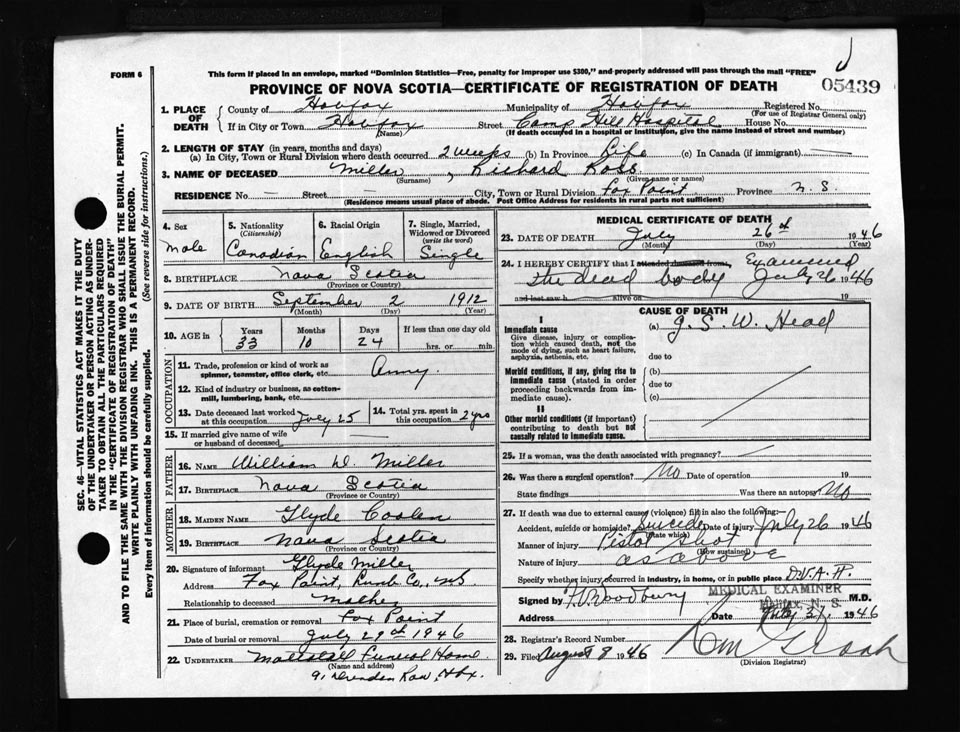 FORM 6
This form if placed in an envelope, marked "Dominion Statistics—Free, penalty for improper use $300," and properly addressed will pass through the mail "FREE"
05439
PROVINCE OF NOVA SCOTIA—CERTIFICATE OF REGISTRATION OF DEATH
1. PLACE OF DEATH County of Halifax Municipality of Halifax Registered No.
(For use of Registrar General only)
If in City or Town Halifax Street Camp Hill Hospital House No.
(Name) (If death occurred in a hospital or institution, give the name instead of street and number)
2. LENGTH OF STAY (in years, months and days)
(a) In City, Town or Rural Division where death occurred 2 weeks (b) In Province Life (c) In Canada (if immigrant) —
3. NAME OF DECEASED Miller, Richard Ross
(Surname) (Given name or names)
RESIDENCE No. — Street — City, Town or Rural Division Fox Point Province N. S.
(Residence means usual place of abode. Post Office Address for residents in rural parts not sufficient)
4. Sex Male
5. Nationality (Citizenship) Canadian
6. Racial Origin English
7. Single, Married, Widowed or Divorced (write the word) Single
8. BIRTHPLACE Nova Scotia
(Province or Country)
9. DATE OF BIRTH September 2 1912
(Month) (Day) (Year)
10. AGE in Years 33 Months 10 Days 24 If less than one day old hrs. or min.
OCCUPATION
11. Trade, profession or kind of work as spinner, teamster, office clerk, etc. Army.
12. Kind of industry or business, as cotton-mill, lumbering, bank, etc.
13. Date deceased last worked at this occupation July 25
14. Total yrs. spent in this occupation 2 yrs
15. If married give name of wife or husband of deceased —
FATHER
16. NAME William D. Miller
17. BIRTHPLACE Nova Scotia
(Province or Country)
MOTHER
18. MAIDEN NAME Glyde Coolen
19. BIRTHPLACE Nova Scotia
(Province or Country)
20. Signature of informant Glyde Miller
Address Fox Point, Lunb Co., NS
Relationship to deceased Mother
21. Place of burial, cremation or removal Fox Point
Date of burial or removal July 29th 1946
22. UNDERTAKER Funeral Home
(Name and address)
91 Row, Hfx.
MEDICAL CERTIFICATE OF DEATH
23. DATE OF DEATH July 26th 1946
(Month) (Day) (Year)
24. I HEREBY CERTIFY that I attended deceased from, Examined
the dead body July 26 1946
and last saw h alive on 19
CAUSE OF DEATH
I
Immediate cause
Give disease, injury or complication which caused death, not the mode of dying, such as heart failure, asphyxia, asthenia, etc.
(a) G. S. W. Head
due to
Morbid conditions, if any, giving rise to immediate cause (stated in order proceeding backwards from immediate cause).
(b)
due to
(c)
II
Other morbid conditions (if important) contributing to death but not causally related to immediate cause.
25. If a woman, was the death associated with pregnancy? —
26. Was there a surgical operation? No Date of operation 19
State findings Was there an autopsy? No
27. If death was due to external causes (violence) fill in also the following:—
Accident, suicide or homicide? Suicide Date of injury July 26 1946
(State which)
Manner of injury Pistol shot
(How sustained)
Nature of injury as above
Specify whether injury occurred in industry, in home, or in public place D.V.A. H.
Signed by Woodbury M.D.
MEDICAL EXAMINER
HALIFAX, N. S.
Address Date July 1946
28. Registrar's Record Number
29. Filed August 8 1946
(Division Registrar)
SEC. 46—VITAL STATISTICS ACT MAKES IT THE DUTY OF THE UNDERTAKER OR PERSON ACTING AS UNDERTAKER TO OBTAIN ALL THE PARTICULARS REQUIRED IN THE "CERTIFICATE OF REGISTRATION OF DEATH"
AND TO FILE THE SAME WITH THE DIVISION REGISTRAR WHO SHALL ISSUE THE BURIAL PERMIT.
WRITE PLAINLY WITH UNFADING INK. THIS IS A PERMANENT RECORD.
Every item of information should be carefully supplied. (See reverse side for instructions.)